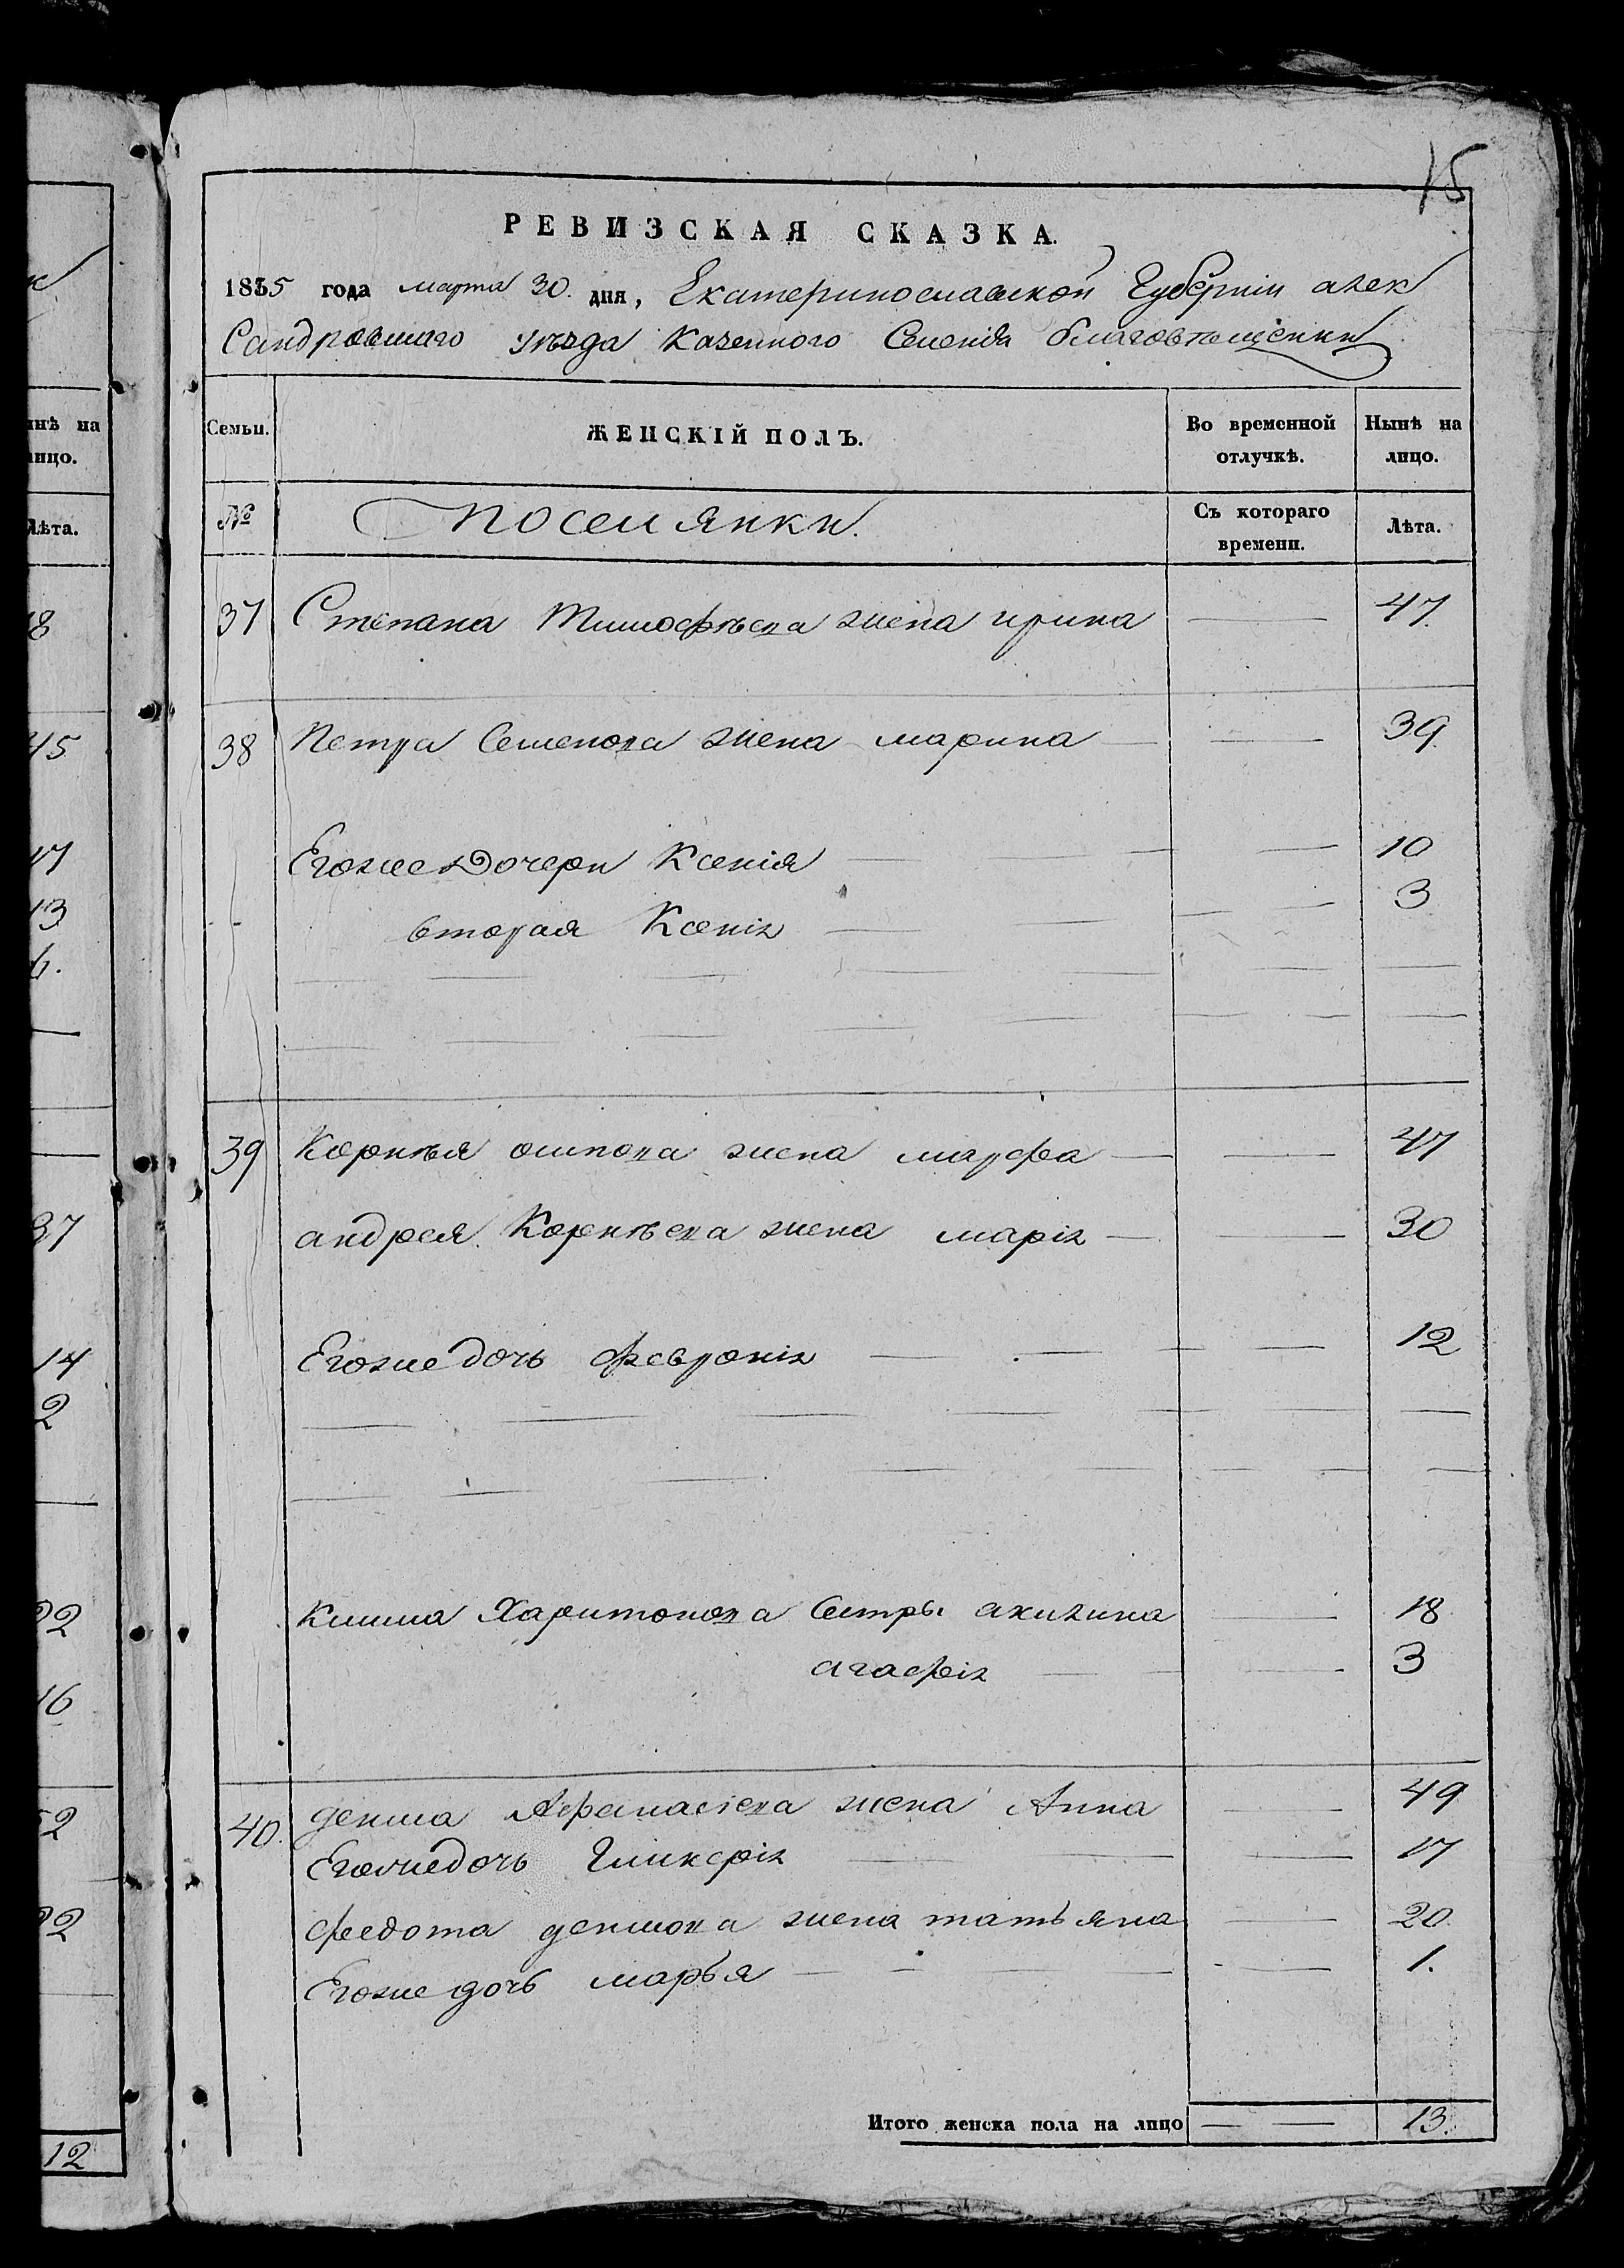 15
РЕВИЗСКАЯ СКАЗКА.
1835 года марта 30. дня, Екатеринославской Губерніи алек
Сандровскаго уѣзда казенного Селенія благовѣщенки
Семьи. ЖЕНСКІЙ ПОЛЪ. Во временной отлучкѣ. Нынѣ на лицо.
№ поселянки. Съ котораго времени. Лѣта.
37 Степана Тимофѣева жена ирина 47.
38 Петра Семенова жена марина 39.
Егоже Дочери Ксенія 10
вторая Ксенія 3
39 Корнѣя осипова жена марфа 47
андрея Корнѣева жена марія 30
Егоже дочь февронія 12
Клима Харитонова Сестры акилина 18
агафія 3
40. дениса Афанасіева жена Анна 49
Егоже дочь Гликерія 17
федота денисова жена татьяна 20.
Егоже дочь марья 1.
Итого женска пола на лицо 13.
нѣ на
лицо.
Лѣта.
8
45
17
13
6.
37
14
2
22
16
52
22
12